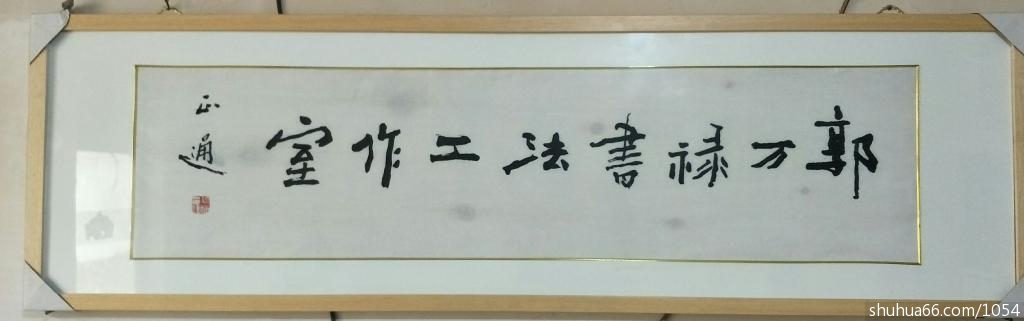 郭万禄書法工作室
正通
shuhua66.com/1054